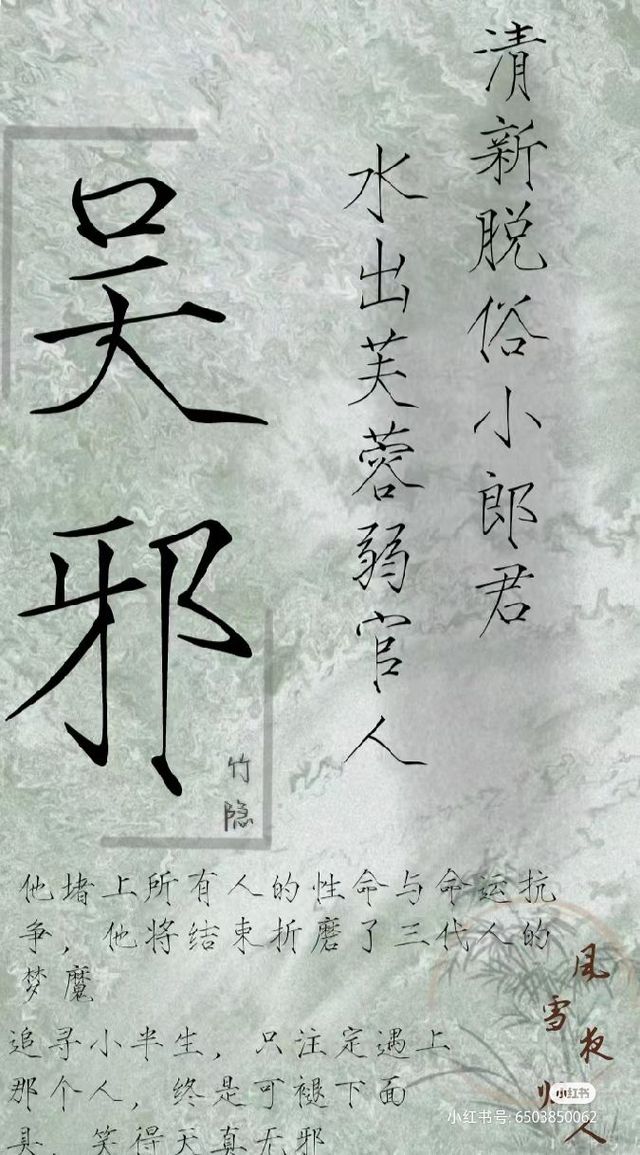 清新脱俗小郎君
水出芙蓉弱官人
吴邪
竹隐
他堵上所有人的性命与命运抗
争，他将结束折磨了三代人的
梦魔
追寻小半生，只注定遇上
那个人，终是可褪下面
具，笑得天真无邪
风雪夜归人
小红书
小红书号：6503850062